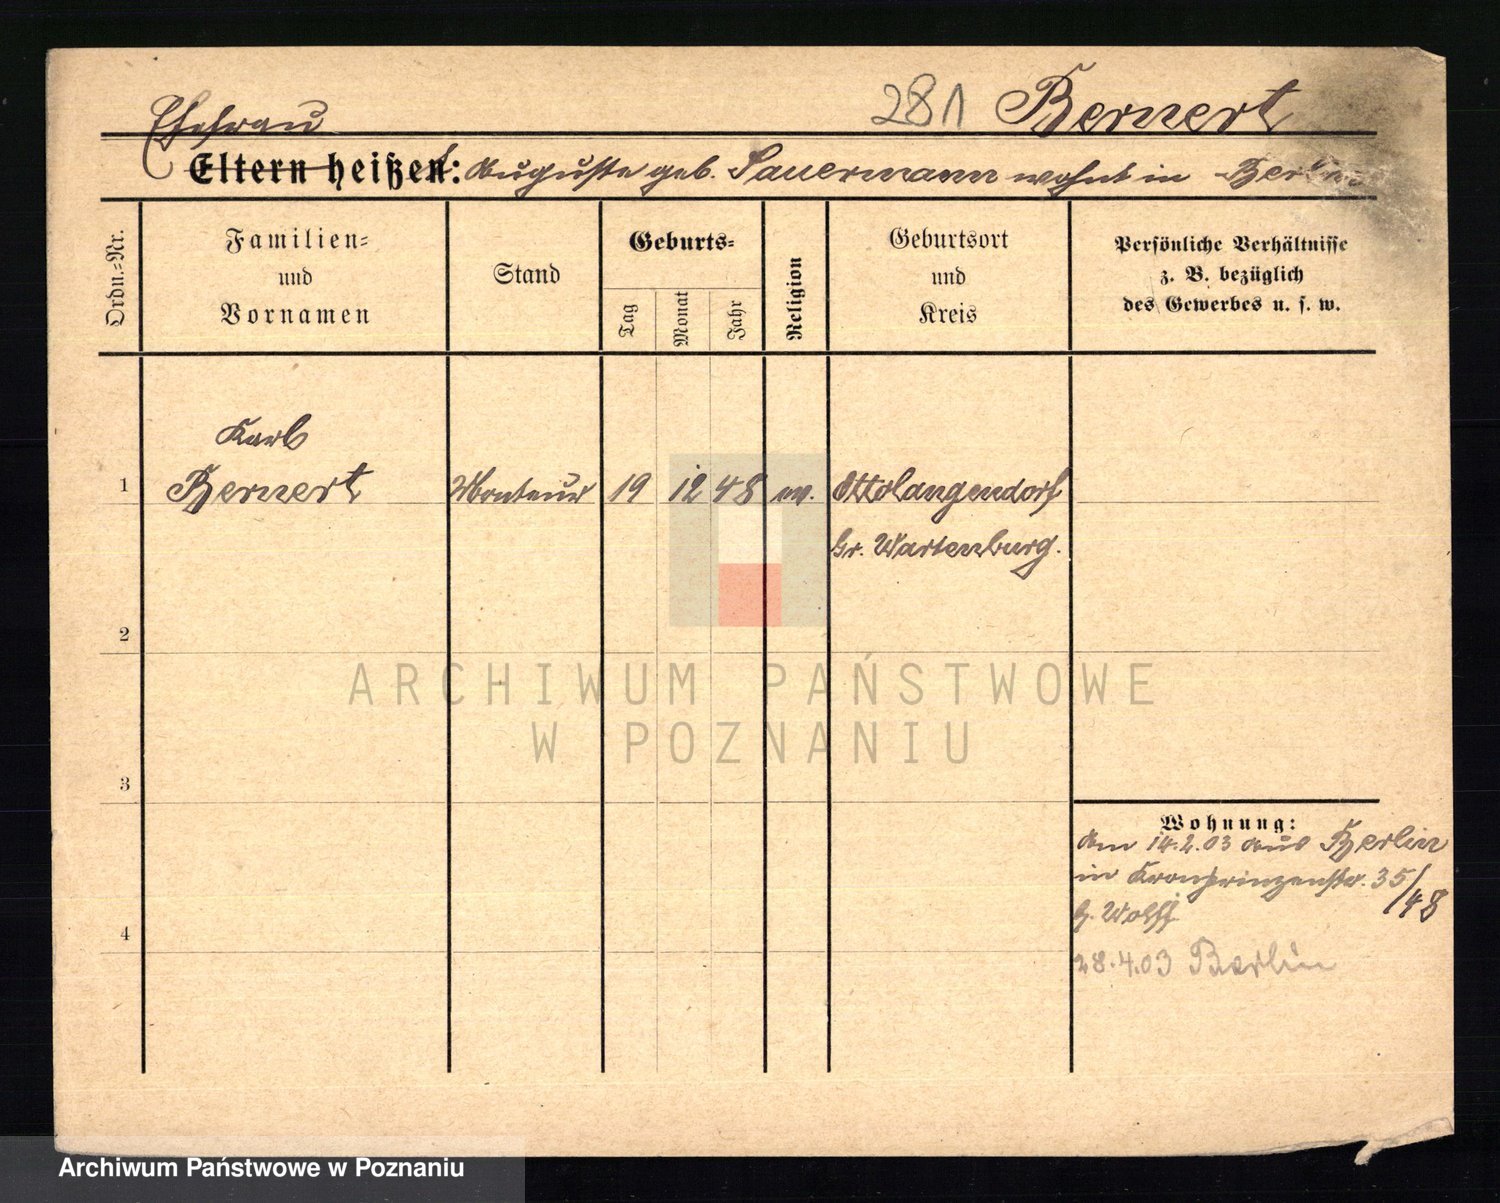 281 Bernert
Ehefrau
Eltern heißen: Auguste geb. Sauermann wohnt in Berlin
Ordn.-Nr.
Familien-
und
Vornamen
Stand
Geburts-
Tag
Monat
Jahr
Religion
Geburtsort
und
Kreis
Persönliche Verhältnisse
z. B. bezüglich
des Gewerbes u. s. w.
Karl
1 Bernert Monteur 19 12 48 ev. Ottolangendorf
Gr. Wartenburg.
2
3
4
Wohnung:
Am 14.2.03 aus Berlin
in Kronprinzenstr. 35/48
b. Wolff
28.4.03 Berlin
ARCHIWUM PAŃSTWOWE
W POZNANIU
Archiwum Państwowe w Poznaniu